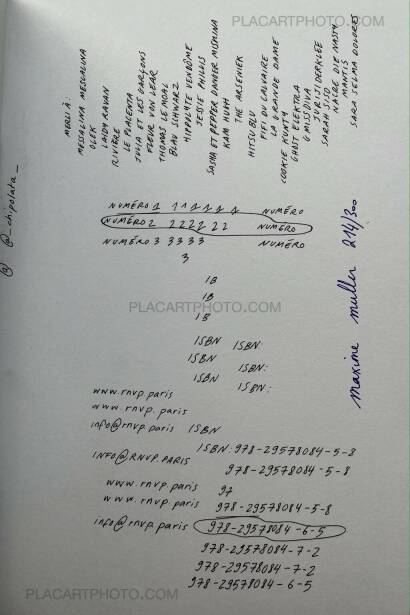 PLACARTPHOTO.COM
MERCI À:
MESSALINA MESCALINA
OLEK
LAIDY RAVAN
RIVIÈRE
LE PLACENTA
JULIA ET LES GARÇONS
FLEUR VON LEAR
THOMAS LE MOAL
BLAU SCHWARZ
HIPPOLYTE VENDÔME
JESSIE PHILLIS
SASHA ET PEPPER DANGER MISMINA
KAM HUGH
THE ARSENIEK
HITSU BLU
FIFI DU CALVAIRE
LA GRANDE DAME
COOKIE KUNTY
GHOST ELEKTRA
G MISSDIVA
JURJIDERKLEE
SARAH SILD
NATRE DIE NASTY
MANTIS
SARA SELMA DOLORES
@ @_chipolata_
NUMÉRO 1 1 1 1 1 1 1 NUMÉRO
NUMÉRO 2 2 2 2 2 2 2 NUMÉRO
NUMÉRO 3 3 3 3 3 NUMÉRO
3
maxime muller 214/300
IB
IB
PLACARTPHOTO.COM
IB
ISBN ISBN:
ISBN
ISBN:
ISBN
ISBN:
www.rnvp.paris
www.rnvp.paris
info@rnvp.paris ISBN
ISBN: 978-29578084-5-8
INFO@RNVP.PARIS
978-29578084-5-8
www.rnvp.paris 97
www.rnvp.paris
978-29578084-5-8
info@rnvp.paris 978-29578084-6-5
978-29578084-7-2
978-29578084-7-2
978-29578084-6-5
PLACARTPHOTO.COM